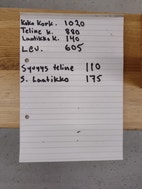 Koko Kork. 1020
Teline K. 880
Laatikko K. 140
Lev. 605
Syvyys teline 110
S. Laatikko 175